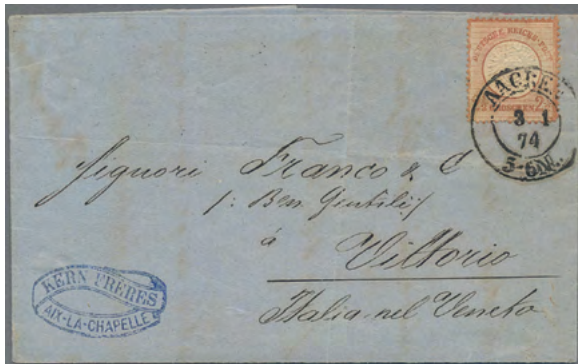 AACHEN
3 1
74
5-6N.
Signori Franco & C
/: Ben Gentili :/
à
Vittorio
Italia nel Veneto
KERN FRÈRES
AIX-LA-CHAPELLE